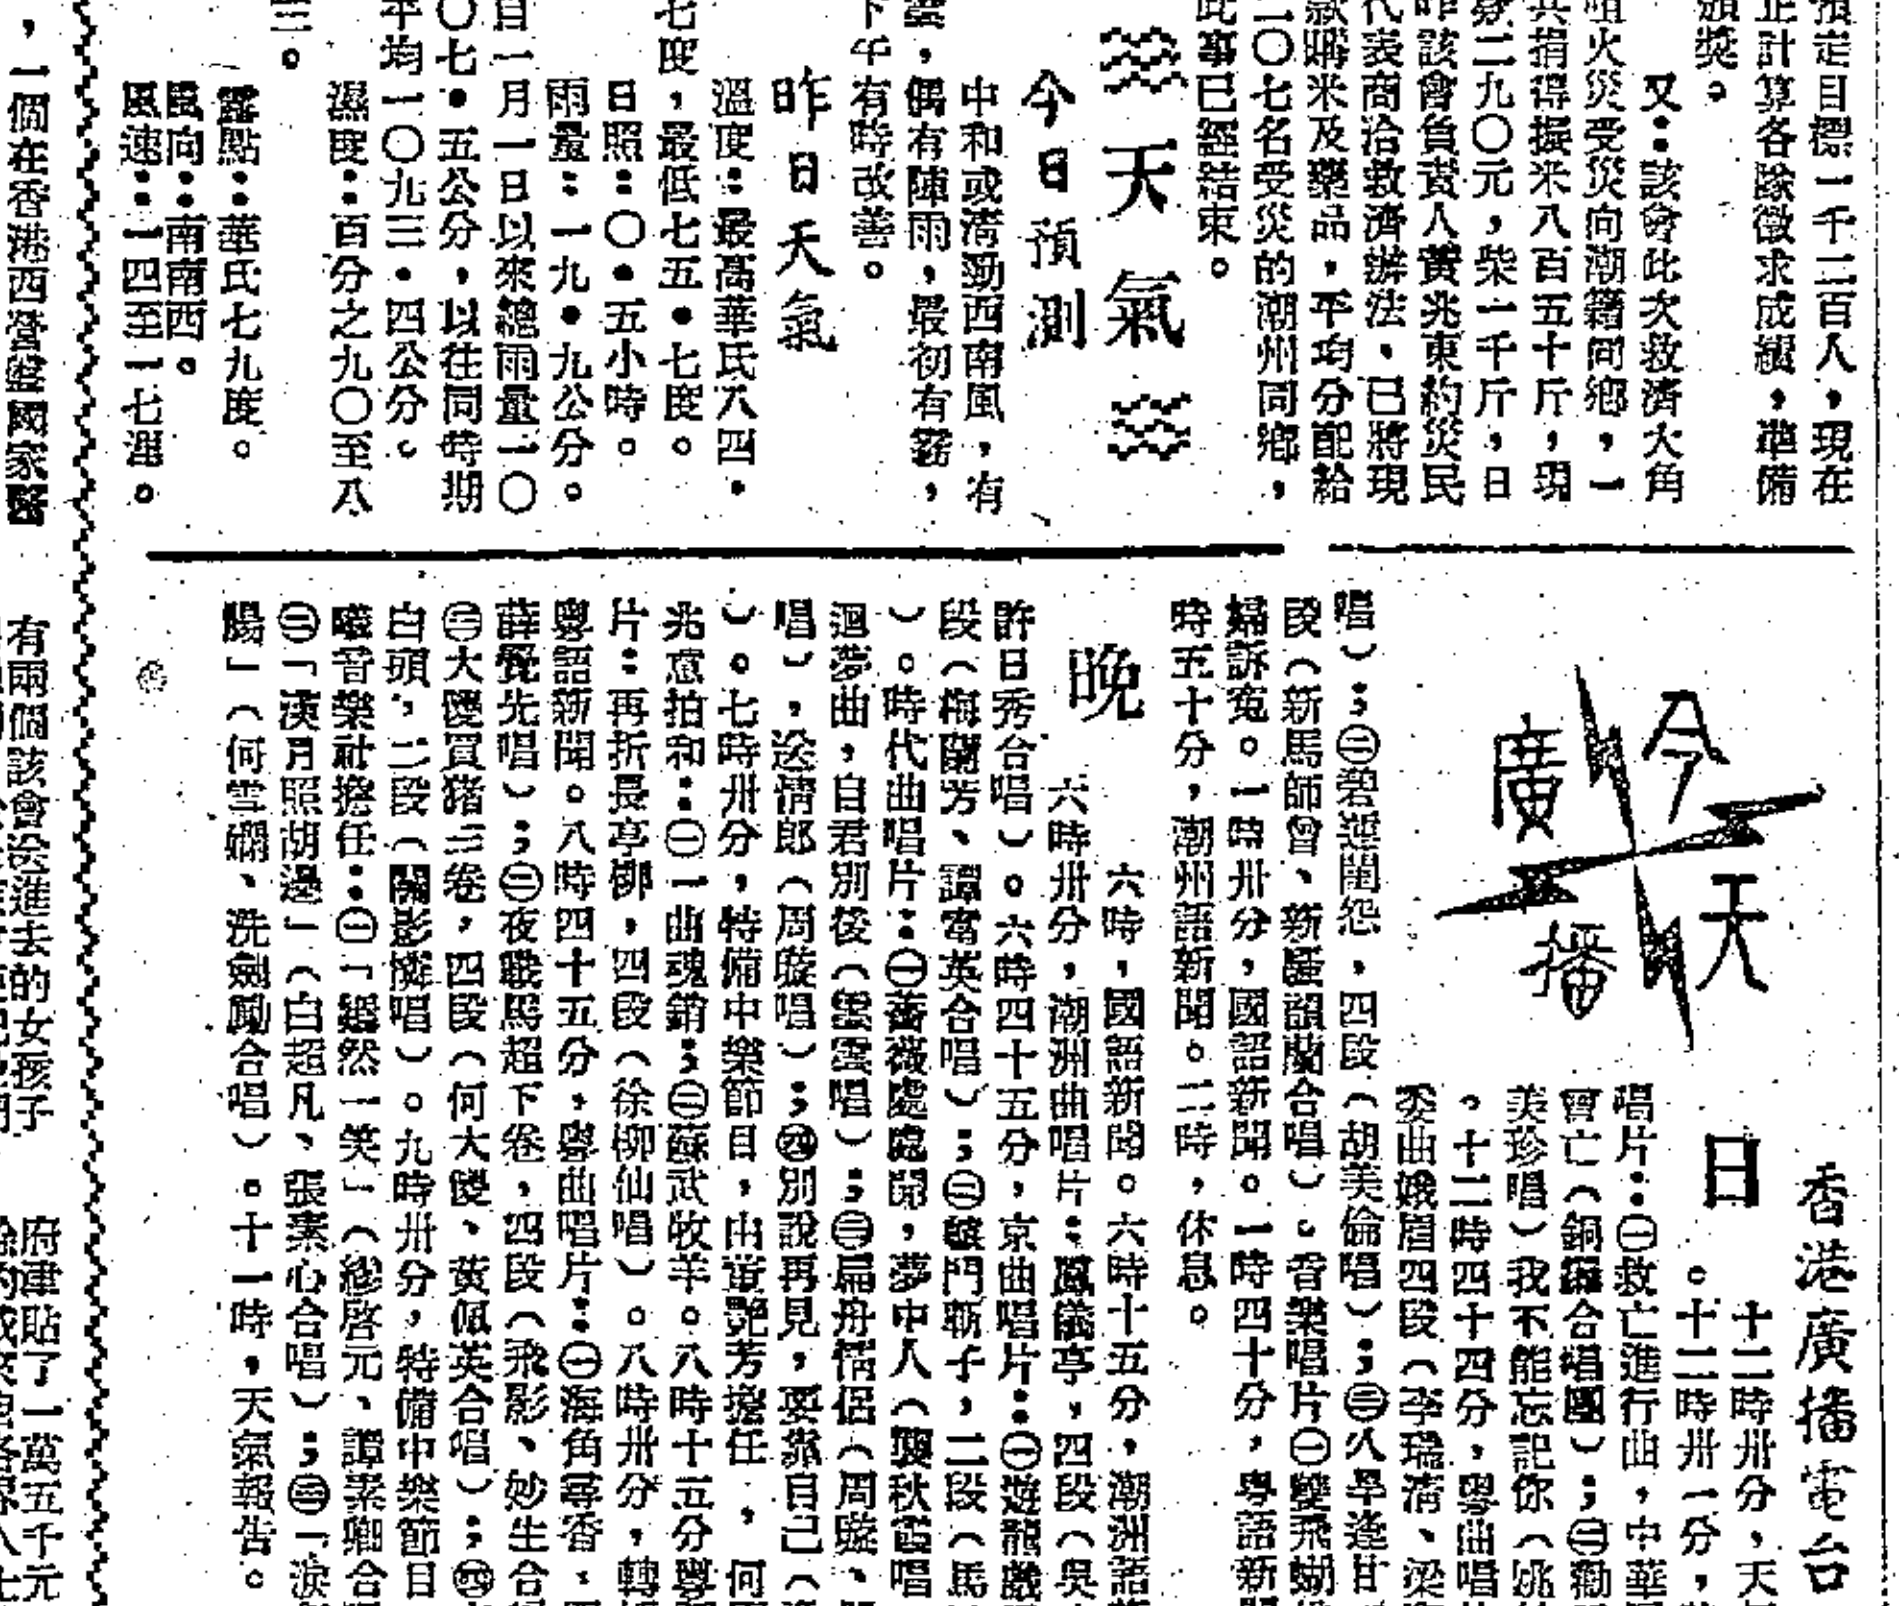 預定目標一千二百人，現在
止計算各隊徵求成績，準備
頒獎。
又：該會此次救濟大角
咀火災受災向潮籍同鄉，一
共捐得捩米八百五十斤，現
款二九〇元，柴一千斤，日
昨該會負責人黃兆東約災民
代表商洽救濟辦法，已將現
款購米及藥品，平均分配給
二〇七名受災的潮州同鄉，
此事已經結束。
天氣
今日預測
中和或淸勁西南風，有
霧，偶有陣雨，最初有霧，
下午有時改善。
昨日天氣
溫度：最高華氏八四·
七度，最低七五·七度。
日照：〇·五小時。
雨量：一九·九公分。
自一月一日以來總雨量一〇
〇七·五公分，以往同時期
平均一〇九三·四公分。
濕度：百分之九〇至八
三。
露點：華氏七九度。
風向：南南西。
風速：一四至一七浬。
今天廣播
香港廣播電台
日
十二時卅分，天
。十二時卅一分，
唱片：㊀救亡進行曲，中華
會亡（銅鑼合唱團）；㊁勸
美珍唱）我不能忘記你（姚
。十二時四十四分，粵曲唱
委曲娥眉四段（李瑞清、梁
唱）；㊁碧蓮閨怨，四段（胡美倫唱）；㊂八旱逢甘
段（新馬師曾、新麗韻蘭合唱）。音樂唱片㊀雙飛蝴
婦訴寃。一時卅分，國語新聞。一時四十分，粵語新
時五十分，潮州語新聞。二時，休息。
晚
六時，國語新聞。六時十五分，潮洲語
六時卅分，潮洲曲唱片：鳳儀亭，四段（吳
許日秀合唱）。六時四十五分，京曲唱片：㊀遊龍戲
段（梅蘭芳、譚富英合唱）；㊁轅門斬子，二段（馬
）。時代曲唱片：㊀薔薇處處開，夢中人（龔秋霞唱
迴夢曲，自君別後（雲雲唱）；㊂扁舟情侶（周璇、
唱），送情郎（周璇唱）；㊃別說再見，要靠自己（
）。七時卅分，特備中樂節目，由董艷芳擔任，何
兆意拍和：㊀一曲魂銷；㊁蘇武牧羊。八時十五分粵
片：再折長亭柳，四段（徐柳仙唱）。八時卅分，轉
粵語新聞。八時四十五分，粵曲唱片：㊀海角尋香，
薛覺先唱）；㊁夜戰馬超下卷，四段（飛影、妙生合
㊂大傻買豬三卷，四段（何大傻、黃佩英合唱）；㊃
白頭，二段（關影憐唱）。九時卅分，特備中樂節目
曦音樂社擔任：㊀「嫣然一笑」（繆啓元、譚素卿合
㊁「漢月照胡邊」（白超凡、張素心合唱）；㊂「淚
腸」（何雪嫻、洗劍鳳合唱）。十一時，天氣報告。
，一個在香港西營盤國家醫
有兩個該會送進去的女孩子
府津貼了一萬五千元